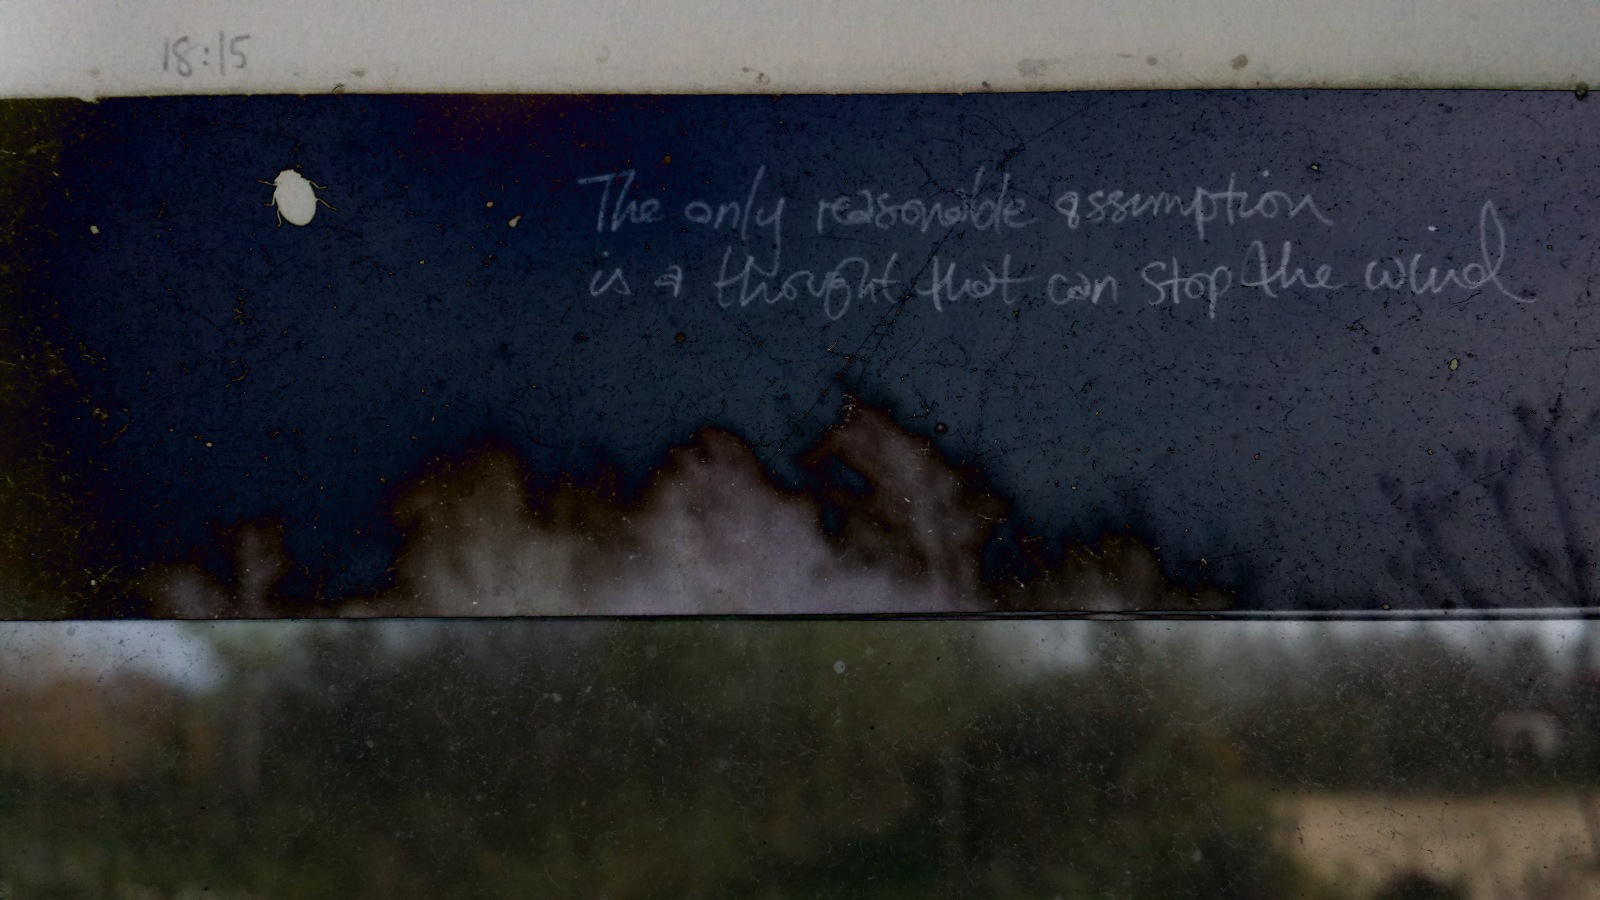 18:15
The only reasonable assumption
is a thought that can stop the wind